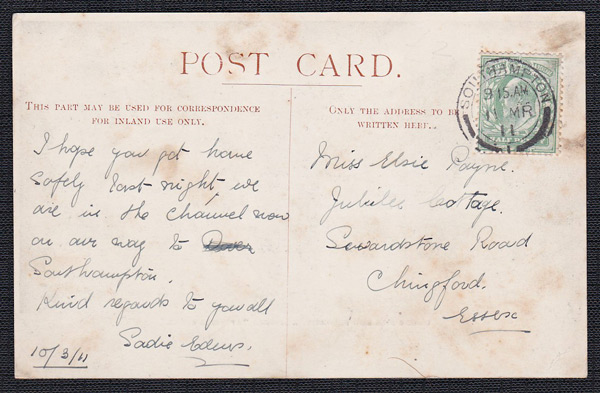 POST CARD.
THIS PART MAY BE USED FOR CORRESPONDENCE
FOR INLAND USE ONLY.
ONLY THE ADDRESS TO BE
WRITTEN HERE.
SOUTHAMPTON
9 15 AM
11 MR
11
I hope you got home
safely last night, we
are in the Channel now
on our way to Dover
Southampton.
Kind regards to you all
Sadie
10/3/11
Miss Elsie Payne.
Jubilee Cottage.
Sewardstone Road
Chingford.
Essex